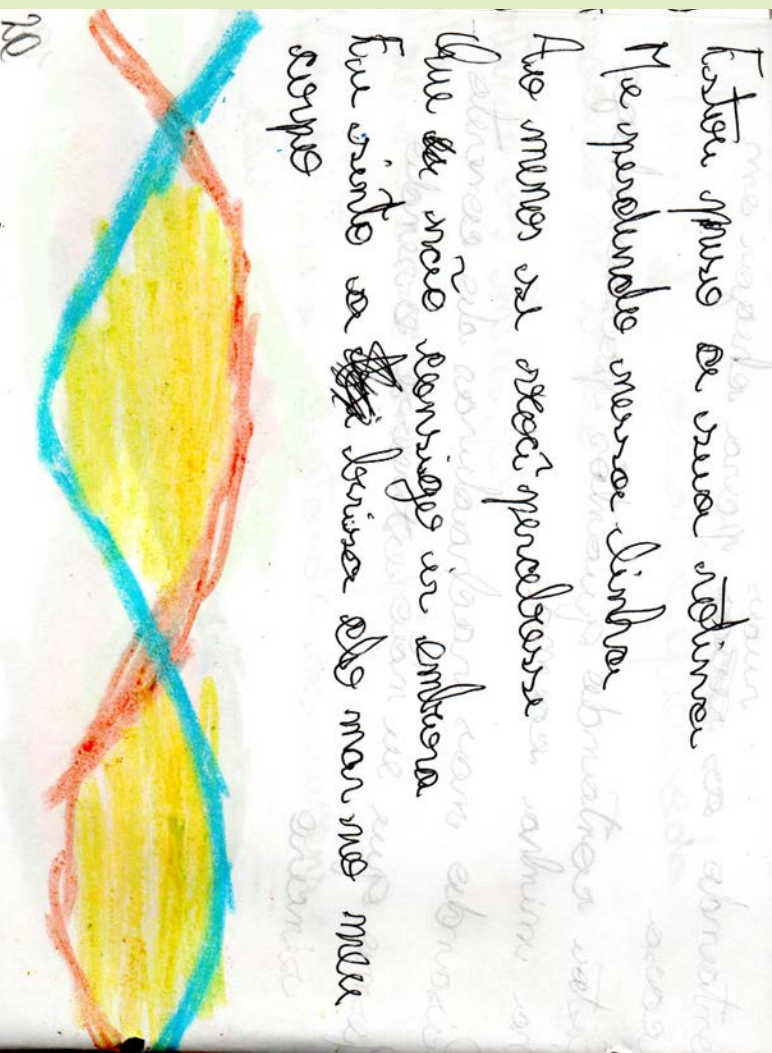 Estou preso a sua rotina
Me perdendo nessa linha
Ao menos se você percebesse
Que eu não consigo ir embora
Eu sinto a brisa do mar no meu
corpo
20